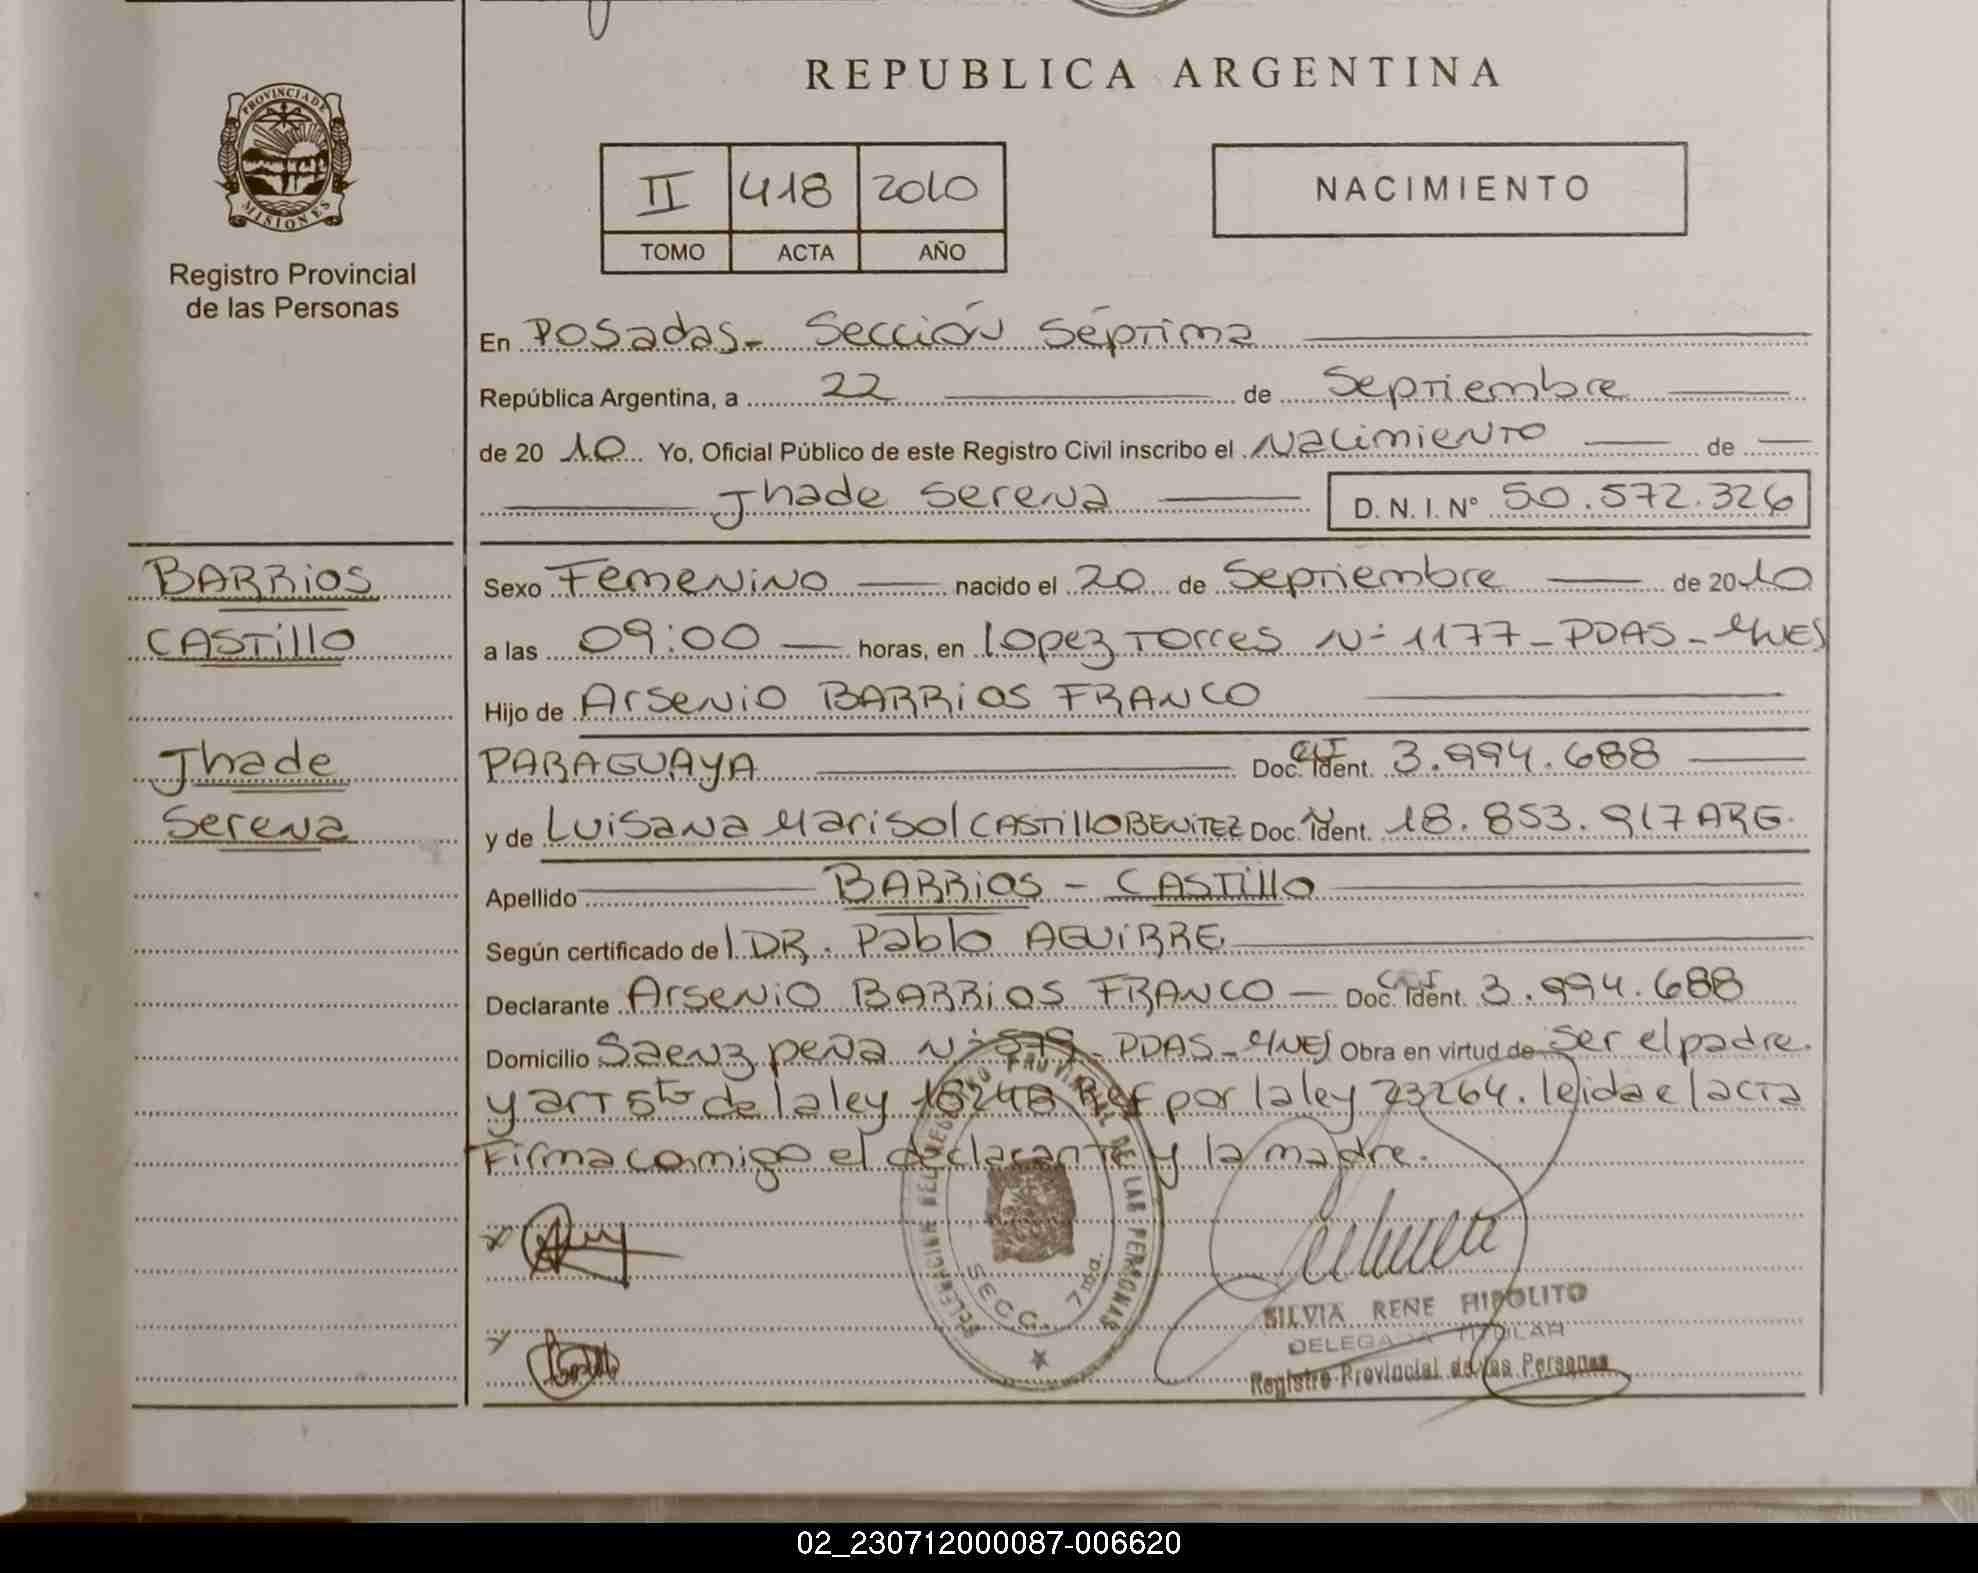 REPUBLICA ARGENTINA
PROVINCIA DE
MISIONES
Registro Provincial
de las Personas
II 418 2010
TOMO ACTA AÑO
NACIMIENTO
En Posadas- Sección Séptima
República Argentina, a 22 de Septiembre
de 2010 Yo, Oficial Público de este Registro Civil inscribo el Nacimiento de
Jhade Serena D.N.I. Nº 50.572.326
BARRIOS
CASTillo
Jhade
Serena
Sexo Femenino nacido el 20 de Septiembre de 2010
a las 09:00 horas, en Lopez Torres Nº 1177-PDAS-Mnes
Hijo de Arsenio BARRIOS FRANCO
PARAGUAYA Doc. Ident. 3.994.688
y de Luisana Marisol CASTillo BENITEZ Doc. Ident. 18.853.917 ARG.
Apellido BARRIOS - CASTillo
Según certificado de l DR. Pablo AGUIRRE
Declarante Arsenio BARRIOS FRANCO Doc. Ident. 3.994.688
Domicilio Saenz peña Nº 579-PDAS-Mnes Obra en virtud de ser el padre.
y art 5to de la ley 18248 Ref por la ley 23264. leida el acta
Firma comigo el declarante y la madre.
REGISTRO PROVINCIAL DE LAS PERSONAS
SECC. 7ma.
SILVIA RENE HIPOLITO
DELEGADA TITULAR
Registro Provincial de las Personas
02_230712000087-006620